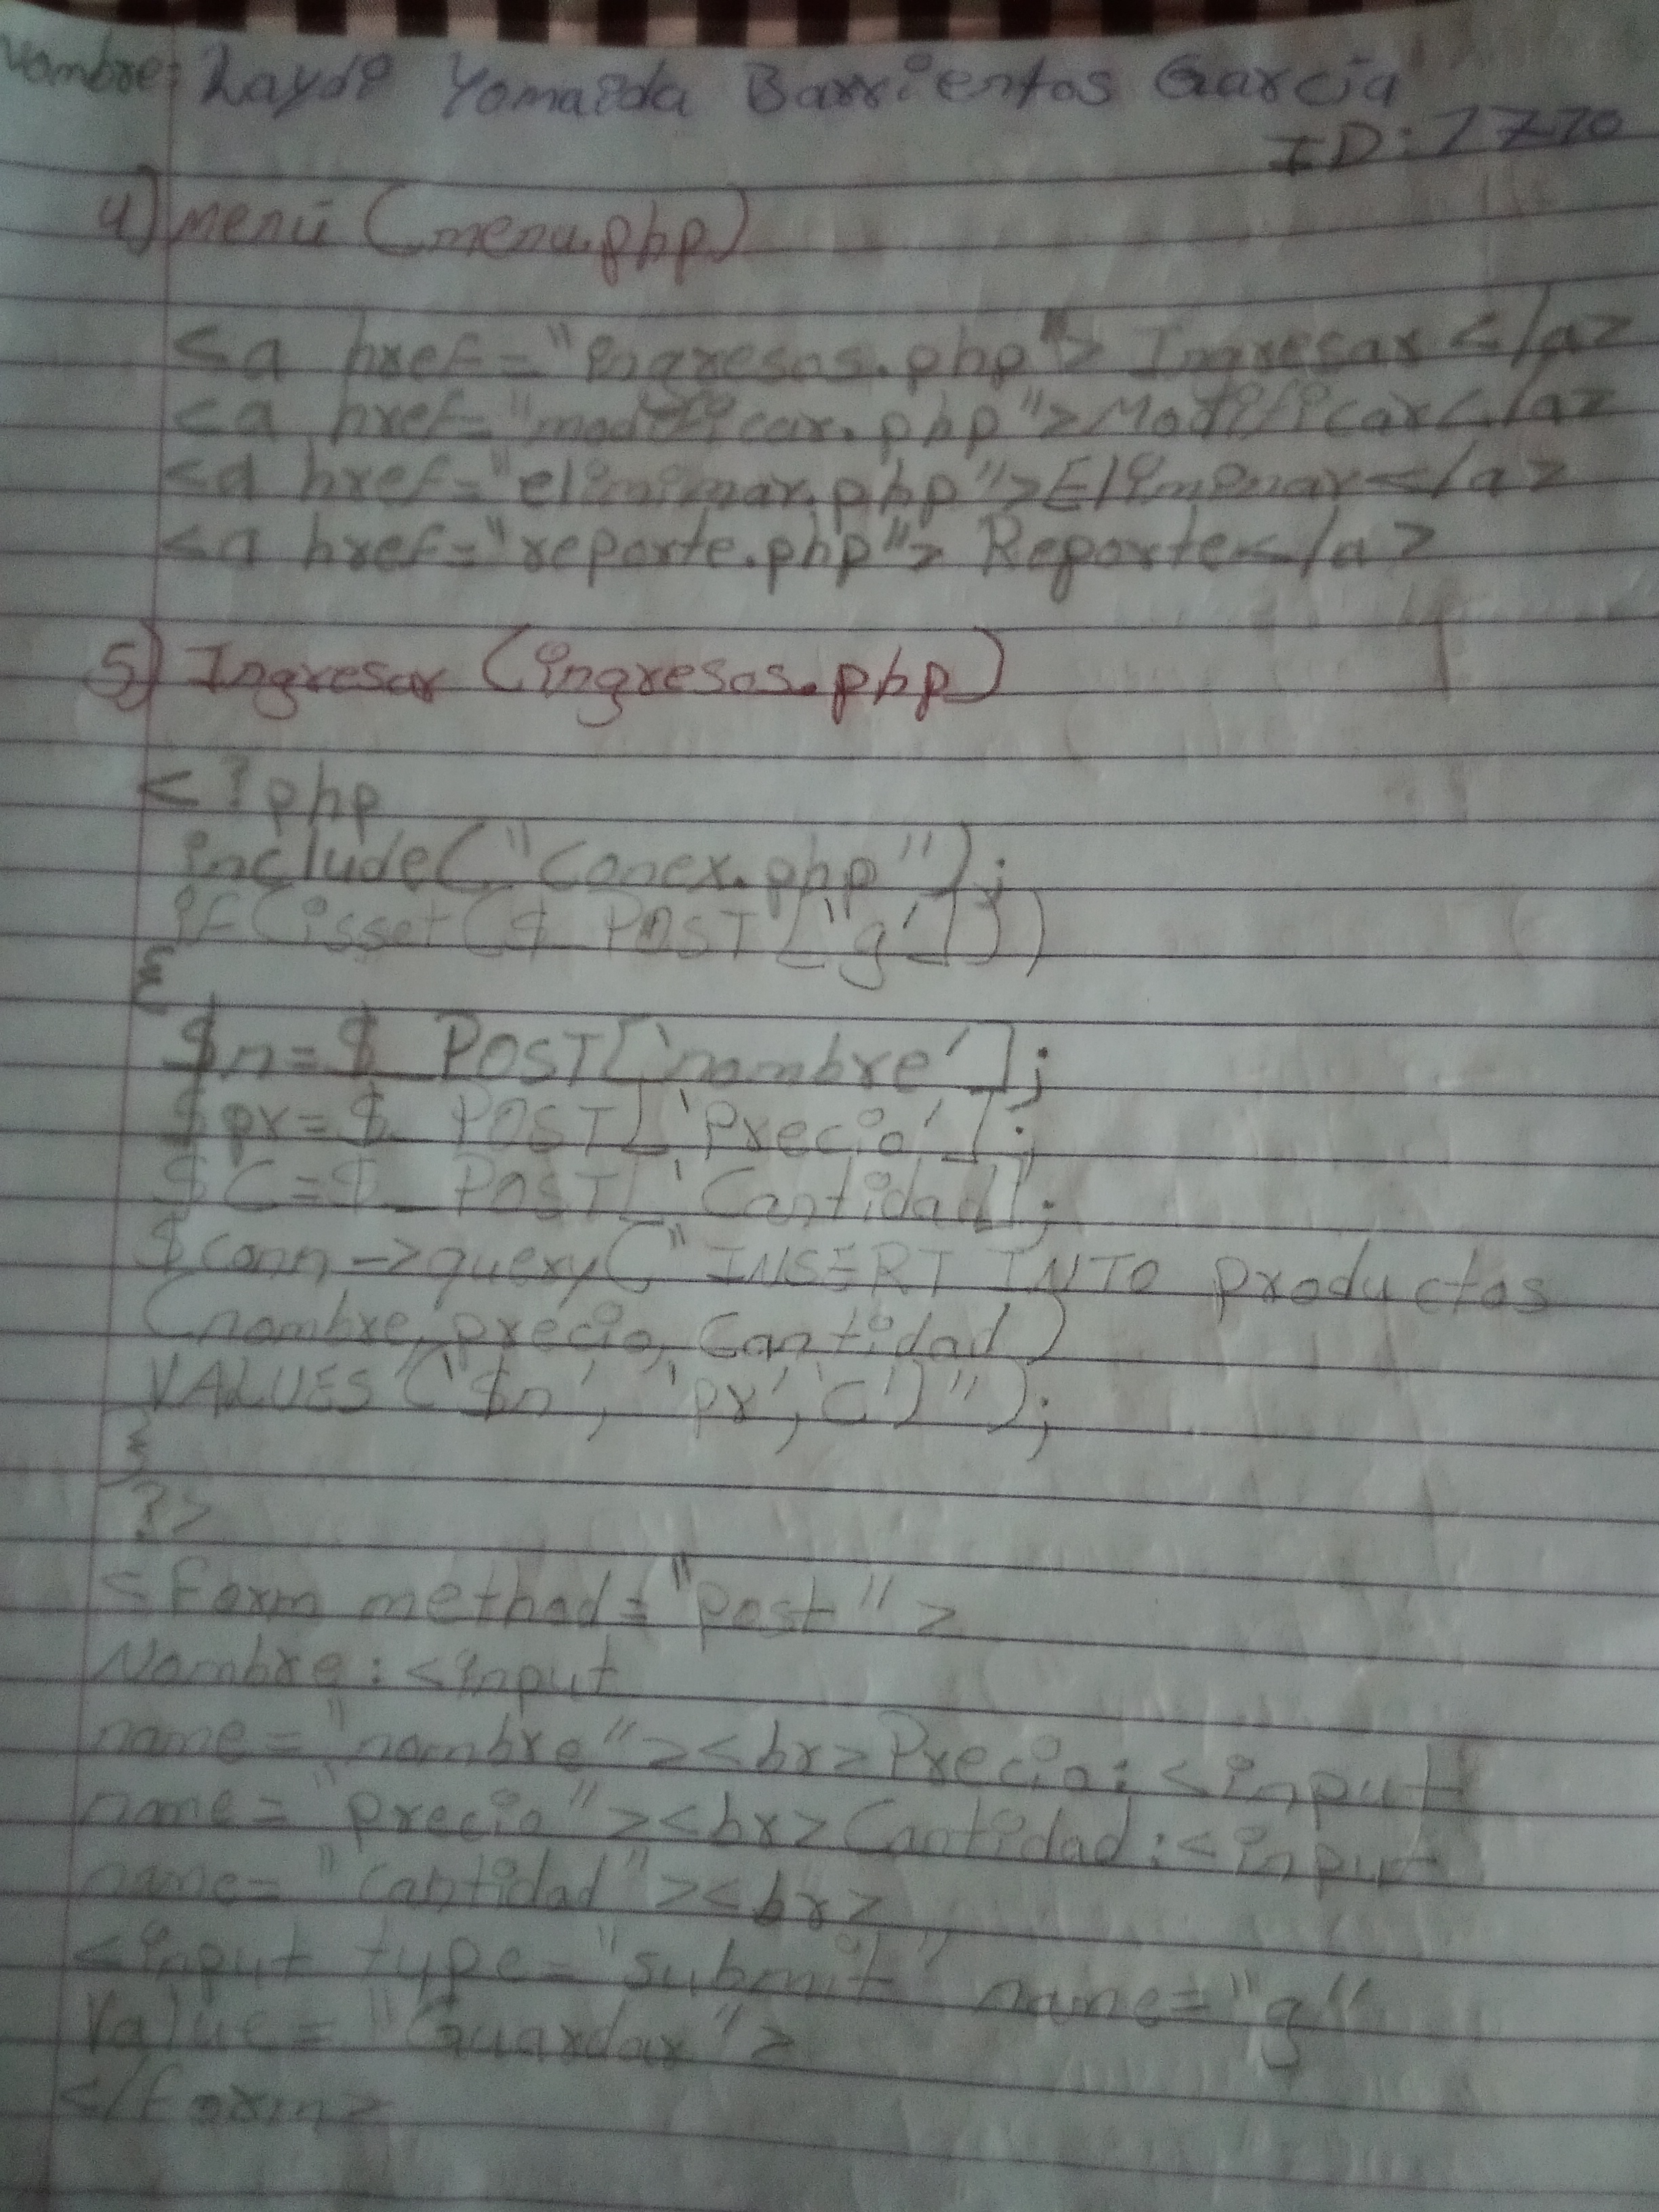 Nombre: Laydi Yomaida Barrientos García
ID: 1770
4) menú (menu.php)
<a href="ingresos.php"> Ingresar </a>
<a href="modificar.php">Modificar</a>
<a href="eliminar.php">Eliminar</a>
<a href="reporte.php"> Reporte</a>
5) Ingresar (ingresos.php)
<?php
include("Conex.php");
if(isset($_POST['g']))
{
$n=$_POST['nombre'];
$pr=$_POST['Precio'];
$C=$_POST['Cantidad];
$conn->query("INSERT INTO productos
(nombre, precio, Cantidad)
VALUES('$n', 'pr','C')");
}
?>
<form method="post">
Nombre: <input
name="nombre"><br>Precio: <input
name="precio"><br>Cantidad: <input
name="Cantidad"><br>
<input type="submit" name="g"
Value="Guardar">
</form>